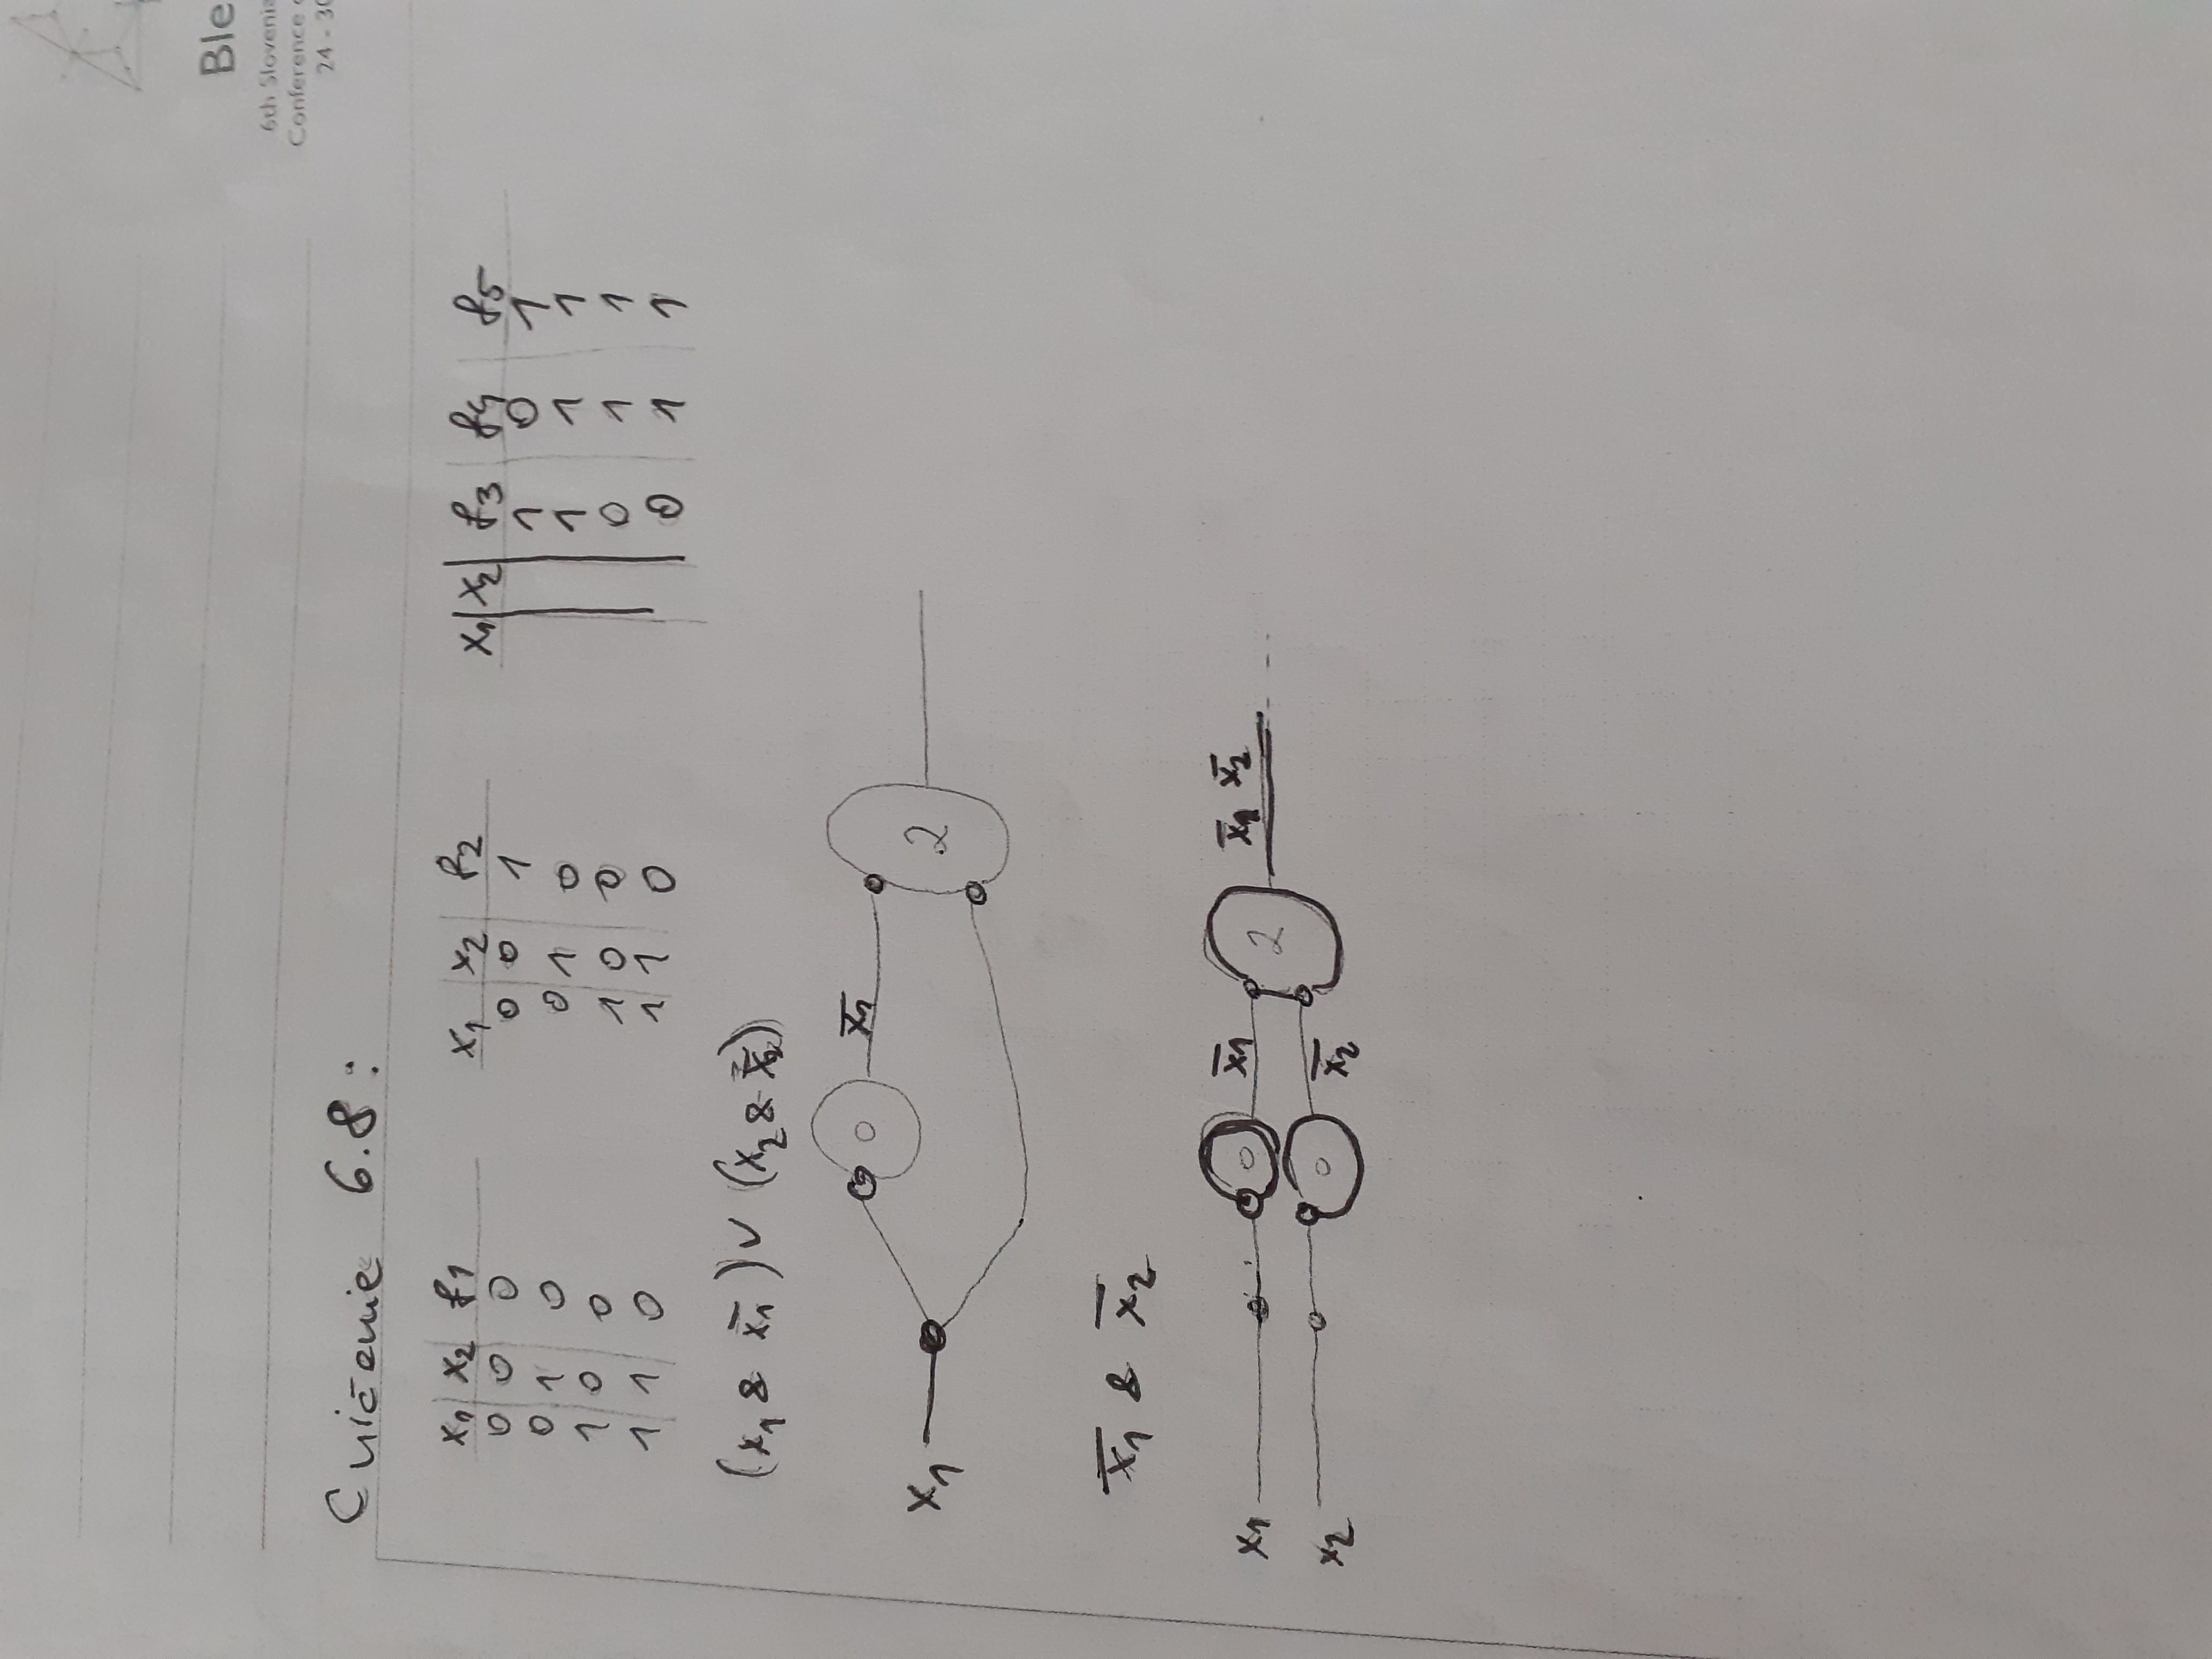 Ble
6th Slovenia
Conference
24 - 30
Cvičenie 6.8:
x1 x2 f1
0 0 0
0 1 0
1 0 0
1 1 0
x1 x2 f2
0 0 1
0 1 0
1 0 0
1 1 0
x1 x2 f3 f4 f5
1 0 1
1 1 1
0 1 1
0 1 1
(x1 & x̄1) ∨ (x2 & x̄2)
x1 0 x̄1 2
x̄1 & x̄2
x1 0 x̄1 2 x̄1 x̄2
x2 0 x̄2